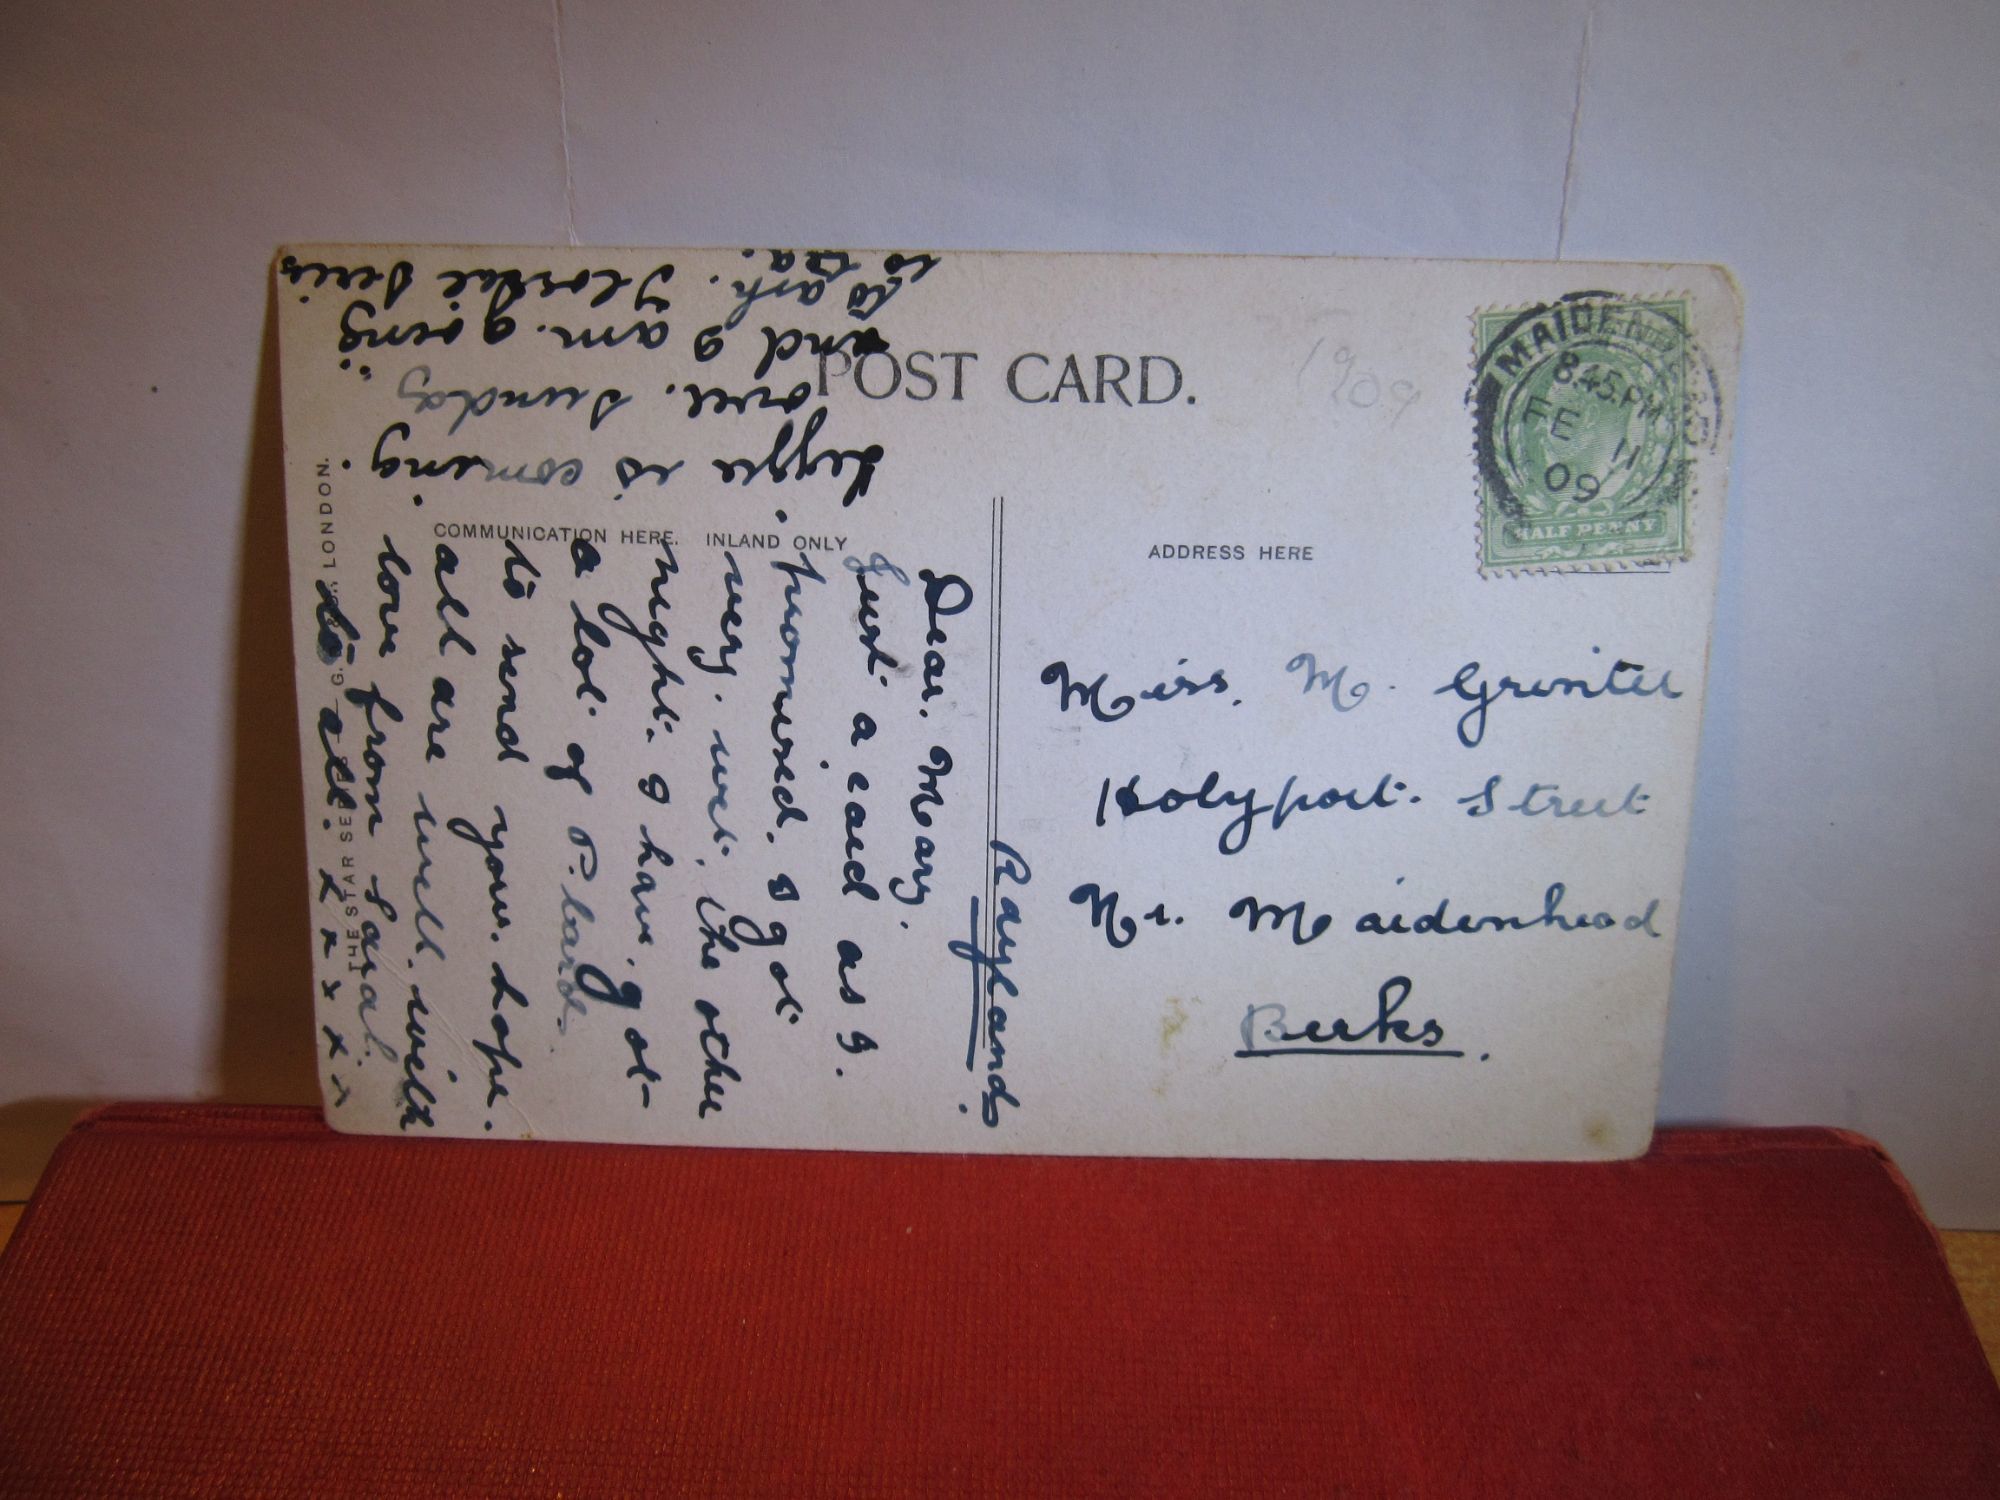 POST CARD.
1909
MAIDENHEAD
8.45 PM
FE 11
09
HALF PENNY
COMMUNICATION HERE. INLAND ONLY
ADDRESS HERE
Miss. M. Grinter
Holyport. Street
Nr. Maidenhead
Berks.
Raylands.
Dear. Mary.
Just a card as I.
promised. I got
very. wet. the other
night. I have. got
a lot of P. cards.
to send you. hope.
all are well. with
love from Sarah.
to all. x x x x x
Lizzie is coming.
over. Sunday
and I am. going
to ask. Florrie
to tea.
THE STAR SERIES — G. LONDON.